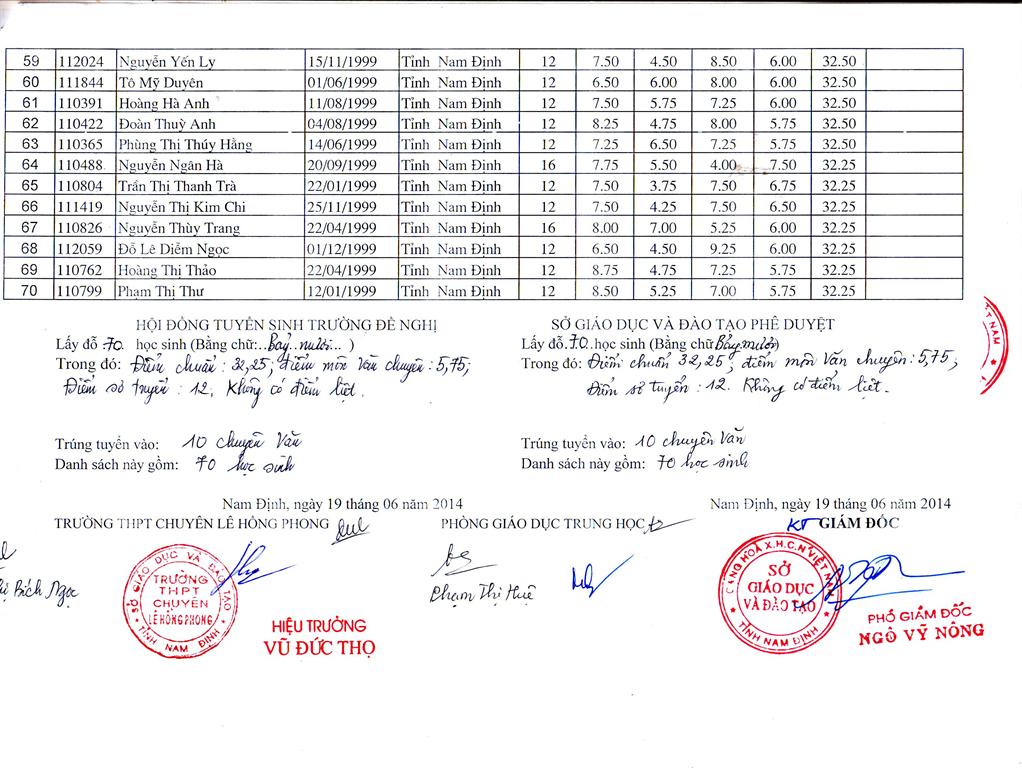 59 112024 Nguyễn Yến Ly 15/11/1999 Tỉnh Nam Định 12 7.50 4.50 8.50 6.00 32.50
60 111844 Tô Mỹ Duyên 01/06/1999 Tỉnh Nam Định 12 6.50 6.00 8.00 6.00 32.50
61 110391 Hoàng Hà Anh 11/08/1999 Tỉnh Nam Định 12 7.50 5.75 7.25 6.00 32.50
62 110422 Đoàn Thuỳ Anh 04/08/1999 Tỉnh Nam Định 12 8.25 4.75 8.00 5.75 32.50
63 110365 Phùng Thị Thúy Hằng 14/06/1999 Tỉnh Nam Định 12 7.25 6.50 7.25 5.75 32.50
64 110488 Nguyễn Ngân Hà 20/09/1999 Tỉnh Nam Định 16 7.75 5.50 4.00 7.50 32.25
65 110804 Trần Thị Thanh Trà 22/01/1999 Tỉnh Nam Định 12 7.50 3.75 7.50 6.75 32.25
66 111419 Nguyễn Thị Kim Chi 25/11/1999 Tỉnh Nam Định 12 7.50 4.25 7.50 6.50 32.25
67 110826 Nguyễn Thùy Trang 22/04/1999 Tỉnh Nam Định 16 8.00 7.00 5.25 6.00 32.25
68 112059 Đỗ Lê Diễm Ngọc 01/12/1999 Tỉnh Nam Định 12 6.50 4.50 9.25 6.00 32.25
69 110762 Hoàng Thị Thảo 22/04/1999 Tỉnh Nam Định 12 8.75 4.75 7.25 5.75 32.25
70 110799 Phạm Thị Thư 12/01/1999 Tỉnh Nam Định 12 8.50 5.25 7.00 5.75 32.25
HỘI ĐỒNG TUYỂN SINH TRƯỜNG ĐỀ NGHỊ
Lấy đỗ 70 học sinh (Bằng chữ:..Bảy mươi... )
Trong đó: Điểm chuẩn: 32,25; điểm môn Văn chuyên: 5,75;
Điểm sơ tuyển: 12; Không có điểm liệt.
Trúng tuyển vào: 10 chuyên Văn
Danh sách này gồm: 70 học sinh
SỞ GIÁO DỤC VÀ ĐÀO TẠO PHÊ DUYỆT
Lấy đỗ.70.học sinh (Bằng chữ Bảy mươi)
Trong đó: Điểm chuẩn 32,25; điểm môn Văn chuyên: 5,75;
Điểm sơ tuyển: 12. Không có điểm liệt.
Trúng tuyển vào: 10 chuyên Văn
Danh sách này gồm: 70 học sinh
T NAM
Nam Định, ngày 19 tháng 06 năm 2014
TRƯỜNG THPT CHUYÊN LÊ HỒNG PHONG
Bích Ngọc
SỞ GIÁO DỤC VÀ ĐÀO TẠO
TRƯỜNG
THPT
CHUYÊN
LÊ HỒNG PHONG
TỈNH NAM ĐỊNH
HIỆU TRƯỞNG
VŨ ĐỨC THỌ
PHÒNG GIÁO DỤC TRUNG HỌC
Phạm Thị Huệ
Nam Định, ngày 19 tháng 06 năm 2014
KT GIÁM ĐỐC
CỘNG HOÀ X.H.C.N VIỆT NAM
SỞ
GIÁO DỤC
VÀ ĐÀO TẠO
TỈNH NAM ĐỊNH
PHÓ GIÁM ĐỐC
NGÔ VỸ NÔNG